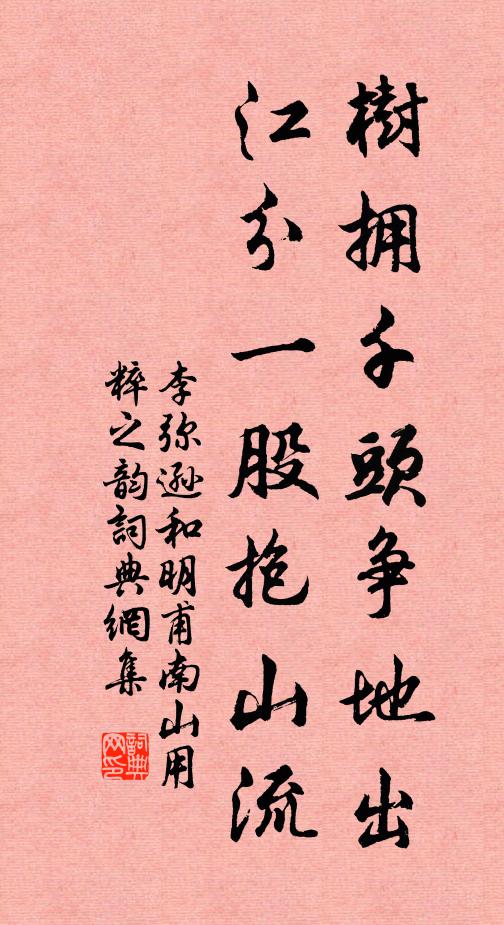 樹拥千頭争地出
江分一股抱山流
李弥遜和明甫南山用
粹之韵詞典網集
詞典网印